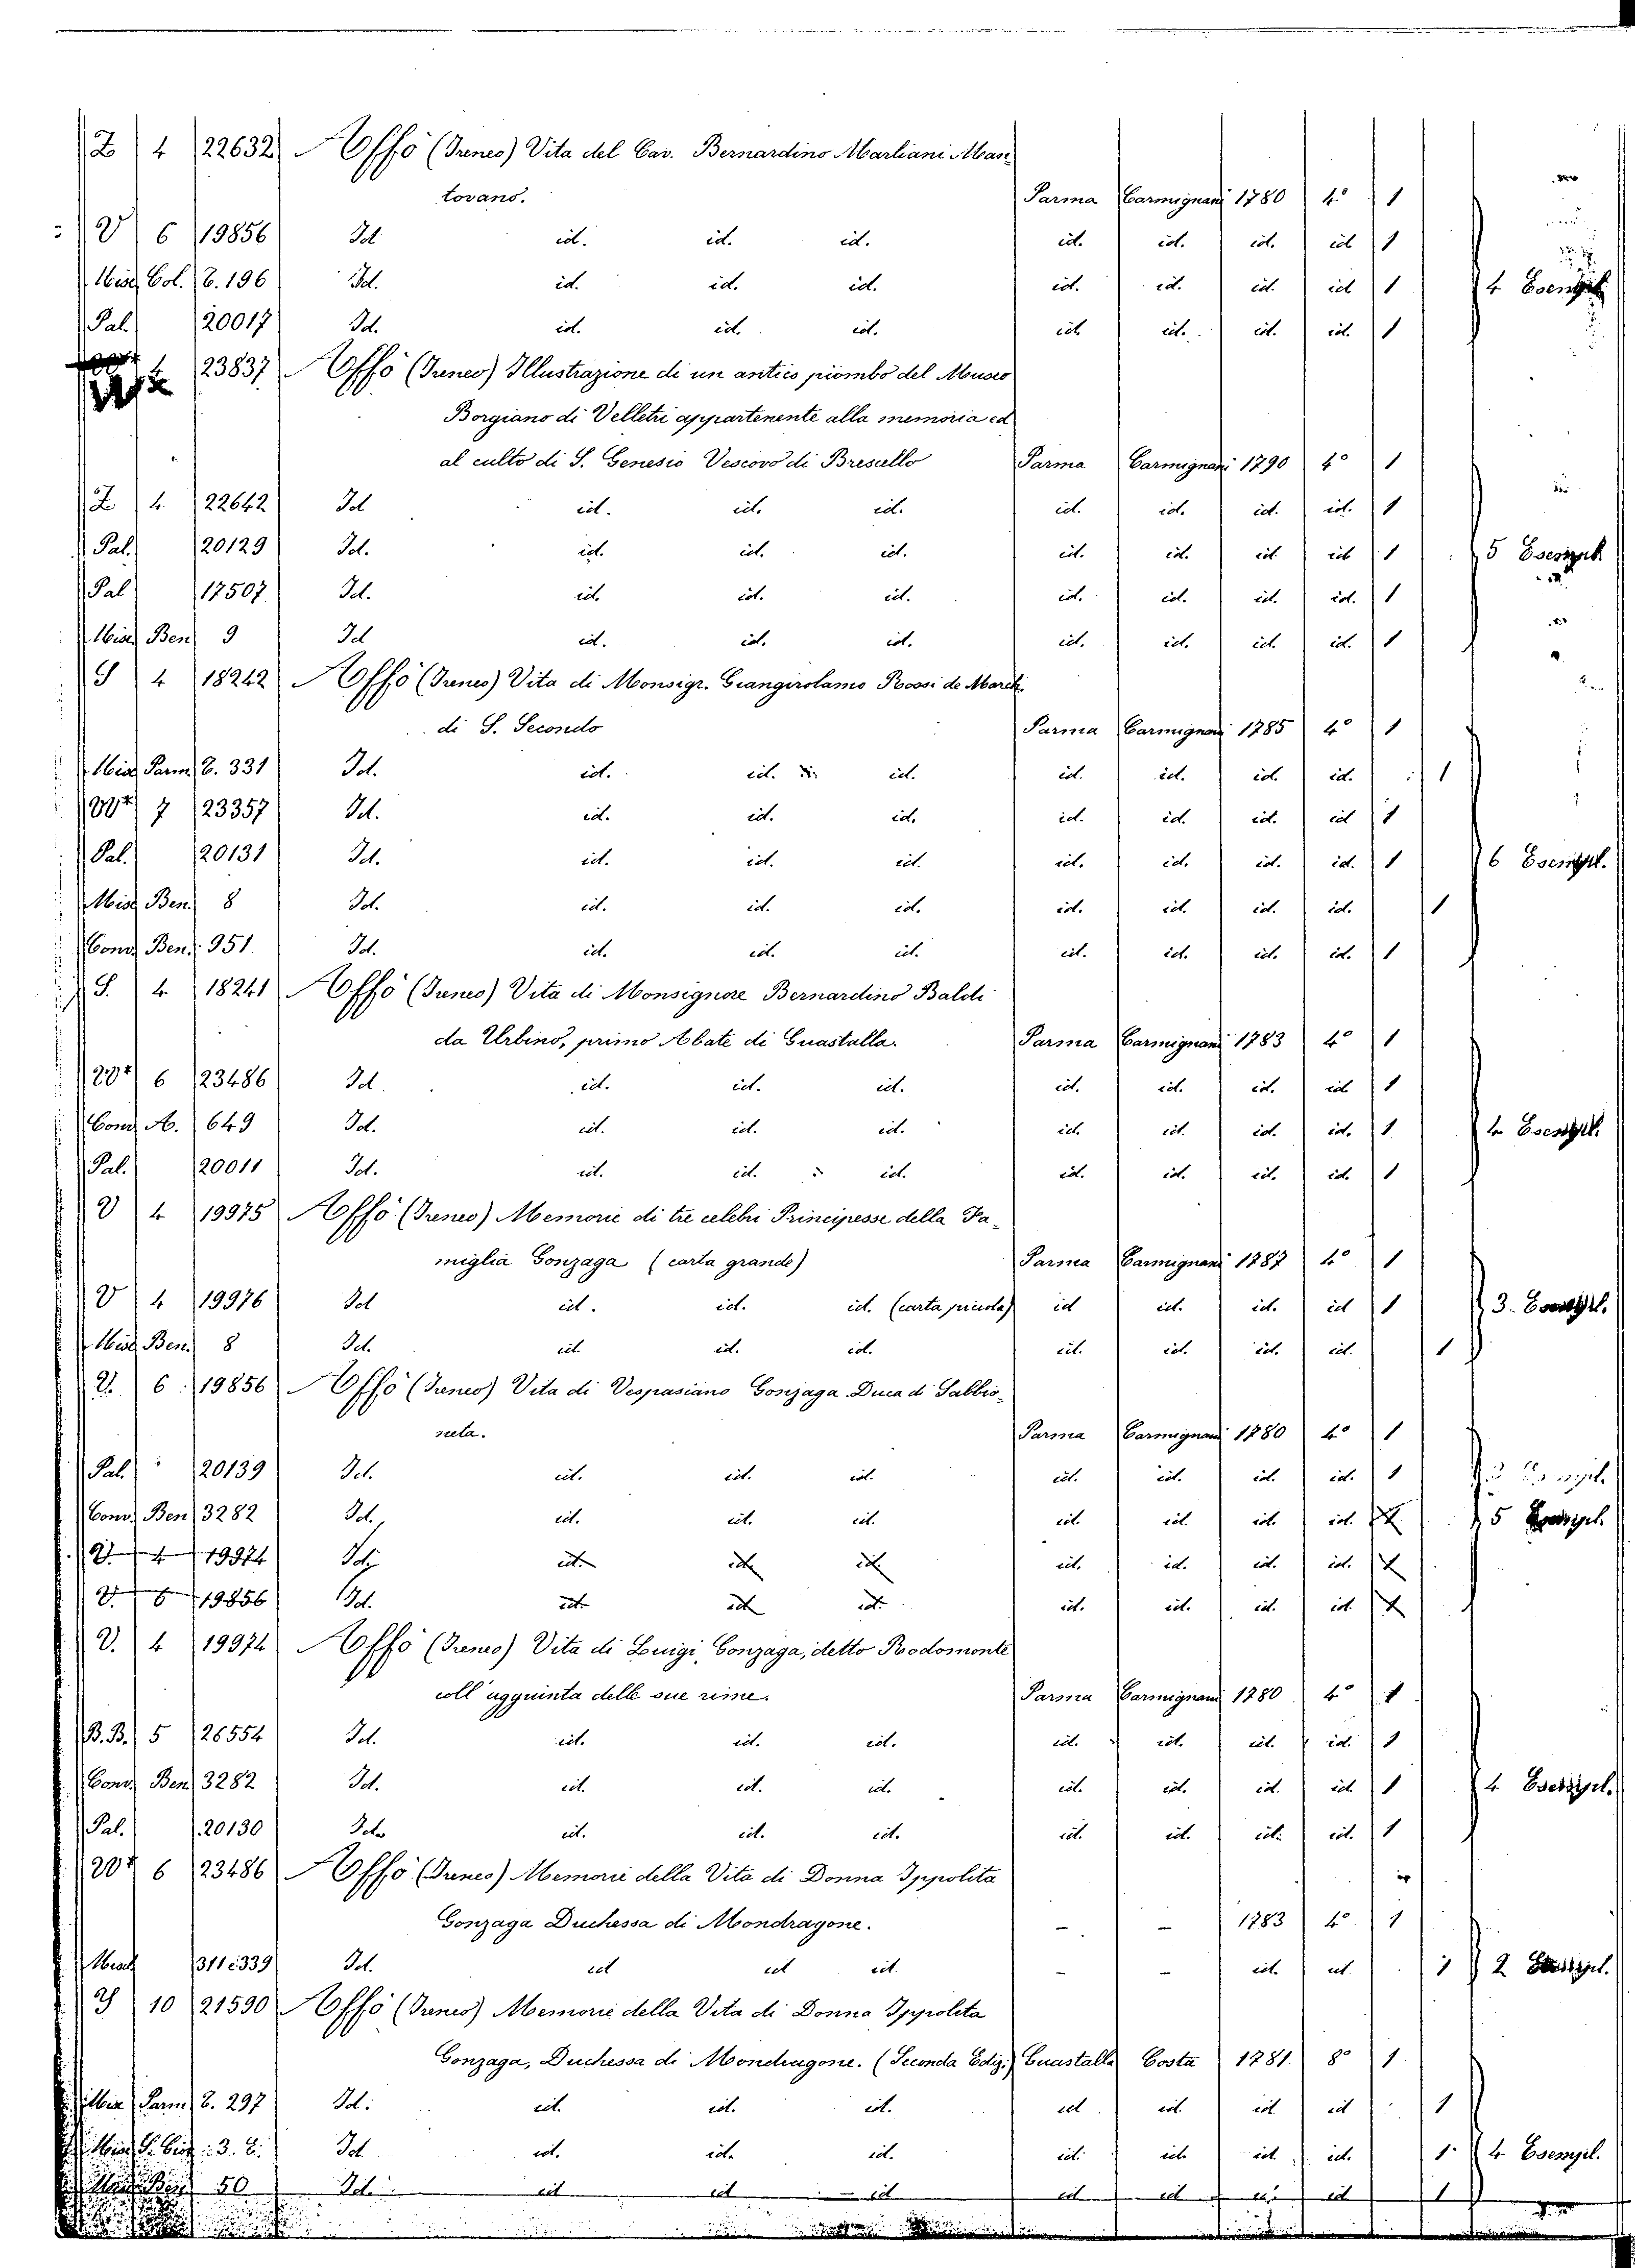 Z 4 22632 Affò (Ireneo) Vita del Cav. Bernardino Marliani Man-
tovano. Parma Carmignani 1780 4° 1
V 6 19856 Id id. id. id. id. id. id. id 1
Misc. Col. C. 196 Id. id. id. id. id. id. id. id 1 4 Esempl.
Pal. 20017 Id. id. id. id. id id. id. id. 1
4 23837 Affò (Ireneo) Illustrazione di un antico piombo del Museo
Borgiano di Velletri appartenente alla memoria ed
al culto di S. Genesio Vescovo di Brescello Parma Carmignani 1790 4° 1
Z 4. 22642 Id id. id. id. id. id. id. id. 1
Pal. 20129 Id. id. id. id. id. id. id. id 1 5 Esempl.
Pal 17507 Id. id. id. id. id. id. id. id. 1
Misc. Ben. 9 Id id. id. id. id. id. id. id. 1
S 4 18242 Affò (Ireneo) Vita di Monsigr. Giangirolamo Rossi de March.
di S. Secondo Parma Carmignani 1785 4° 1
Misc. Parm. C. 331 Id. id. id. id. id. id. id. id. 1
7 23357 Id. id. id. id. id. id. id. id 1
Pal. 20131 Id. id. id. id. id. id. id. id. 1 6 Esempl.
Misc. Ben. 8 Id. id. id. id. id. id. id. id. 1
Conv. Ben. 951 Id. id. id. id. id. id. id. id. 1
S. 4 18241 Affò (Ireneo) Vita di Monsignore Bernardino Baldi
da Urbino, primo Abate di Guastalla. Parma Carmignani 1783 4° 1
6 23486 Id. id. id. id. id. id. id. id 1
Conv. A. 649 Id. id. id. id. id. id. id. id. 1 4 Esempl.
Pal. 20011 Id. id. id. id. id. id. id. id. 1
V 4 19975 Affò (Ireneo) Memorie di tre celebri Principesse della Fa-
miglia Gonzaga (carta grande) Parma Carmignani 1787 4° 1
V 4 19976 Id id. id. id. (carta piccola) id id. id. id 1 3. Esempl.
Misc. Ben. 8 Id. id. id. id. id. id. id. id. 1
V. 6 19856 Affò (Ireneo) Vita di Vespasiano Gonzaga Duca di Sabbio-
neta. Parma Carmignani 1780 4° 1
Pal. 20139 Id. id. id. id. id. id. id. id. 1
Conv. Ben. 3282 Id. id. id. id. id. id. id. id. 5 Esempl.
V. 4 19974 Id. id. id. id. id. id. id. id.
V. 6 19856 Id. id. id. id. id. id. id. id.
V. 4 19974 Affò (Ireneo) Vita di Luigi Gonzaga, detto Rodomonte
coll'aggiunta delle sue rime. Parma Carmignani 1780 4° 1
B.B. 5 26554 Id. id. id. id. id. id. id. id. 1
Conv. Ben. 3282 Id. id. id. id. id. id. id. id 1 4 Esempl.
Pal. 20130 Id. id. id. id. id. id. id. id. 1
6 23486 Affò (Ireneo) Memorie della Vita di Donna Ippolita
Gonzaga Duchessa di Mondragone. — — 1783 4° 1
Misc. 311 e 339 Id. id id id. — — id. id. 1 2 Esempl.
Y 10 21590 Affò (Ireneo) Memorie della Vita di Donna Ippolita
Gonzaga, Duchessa di Mondragone. (Seconda Ediz.) Guastalla Costa 1781. 8° 1
Misc. Parm. C. 297 Id. id. id. id. id. id. id id 1
3. C. Id id. id. id. id. id. id. id. 1 4 Esempl.
50 Id. id id id id id id id 1